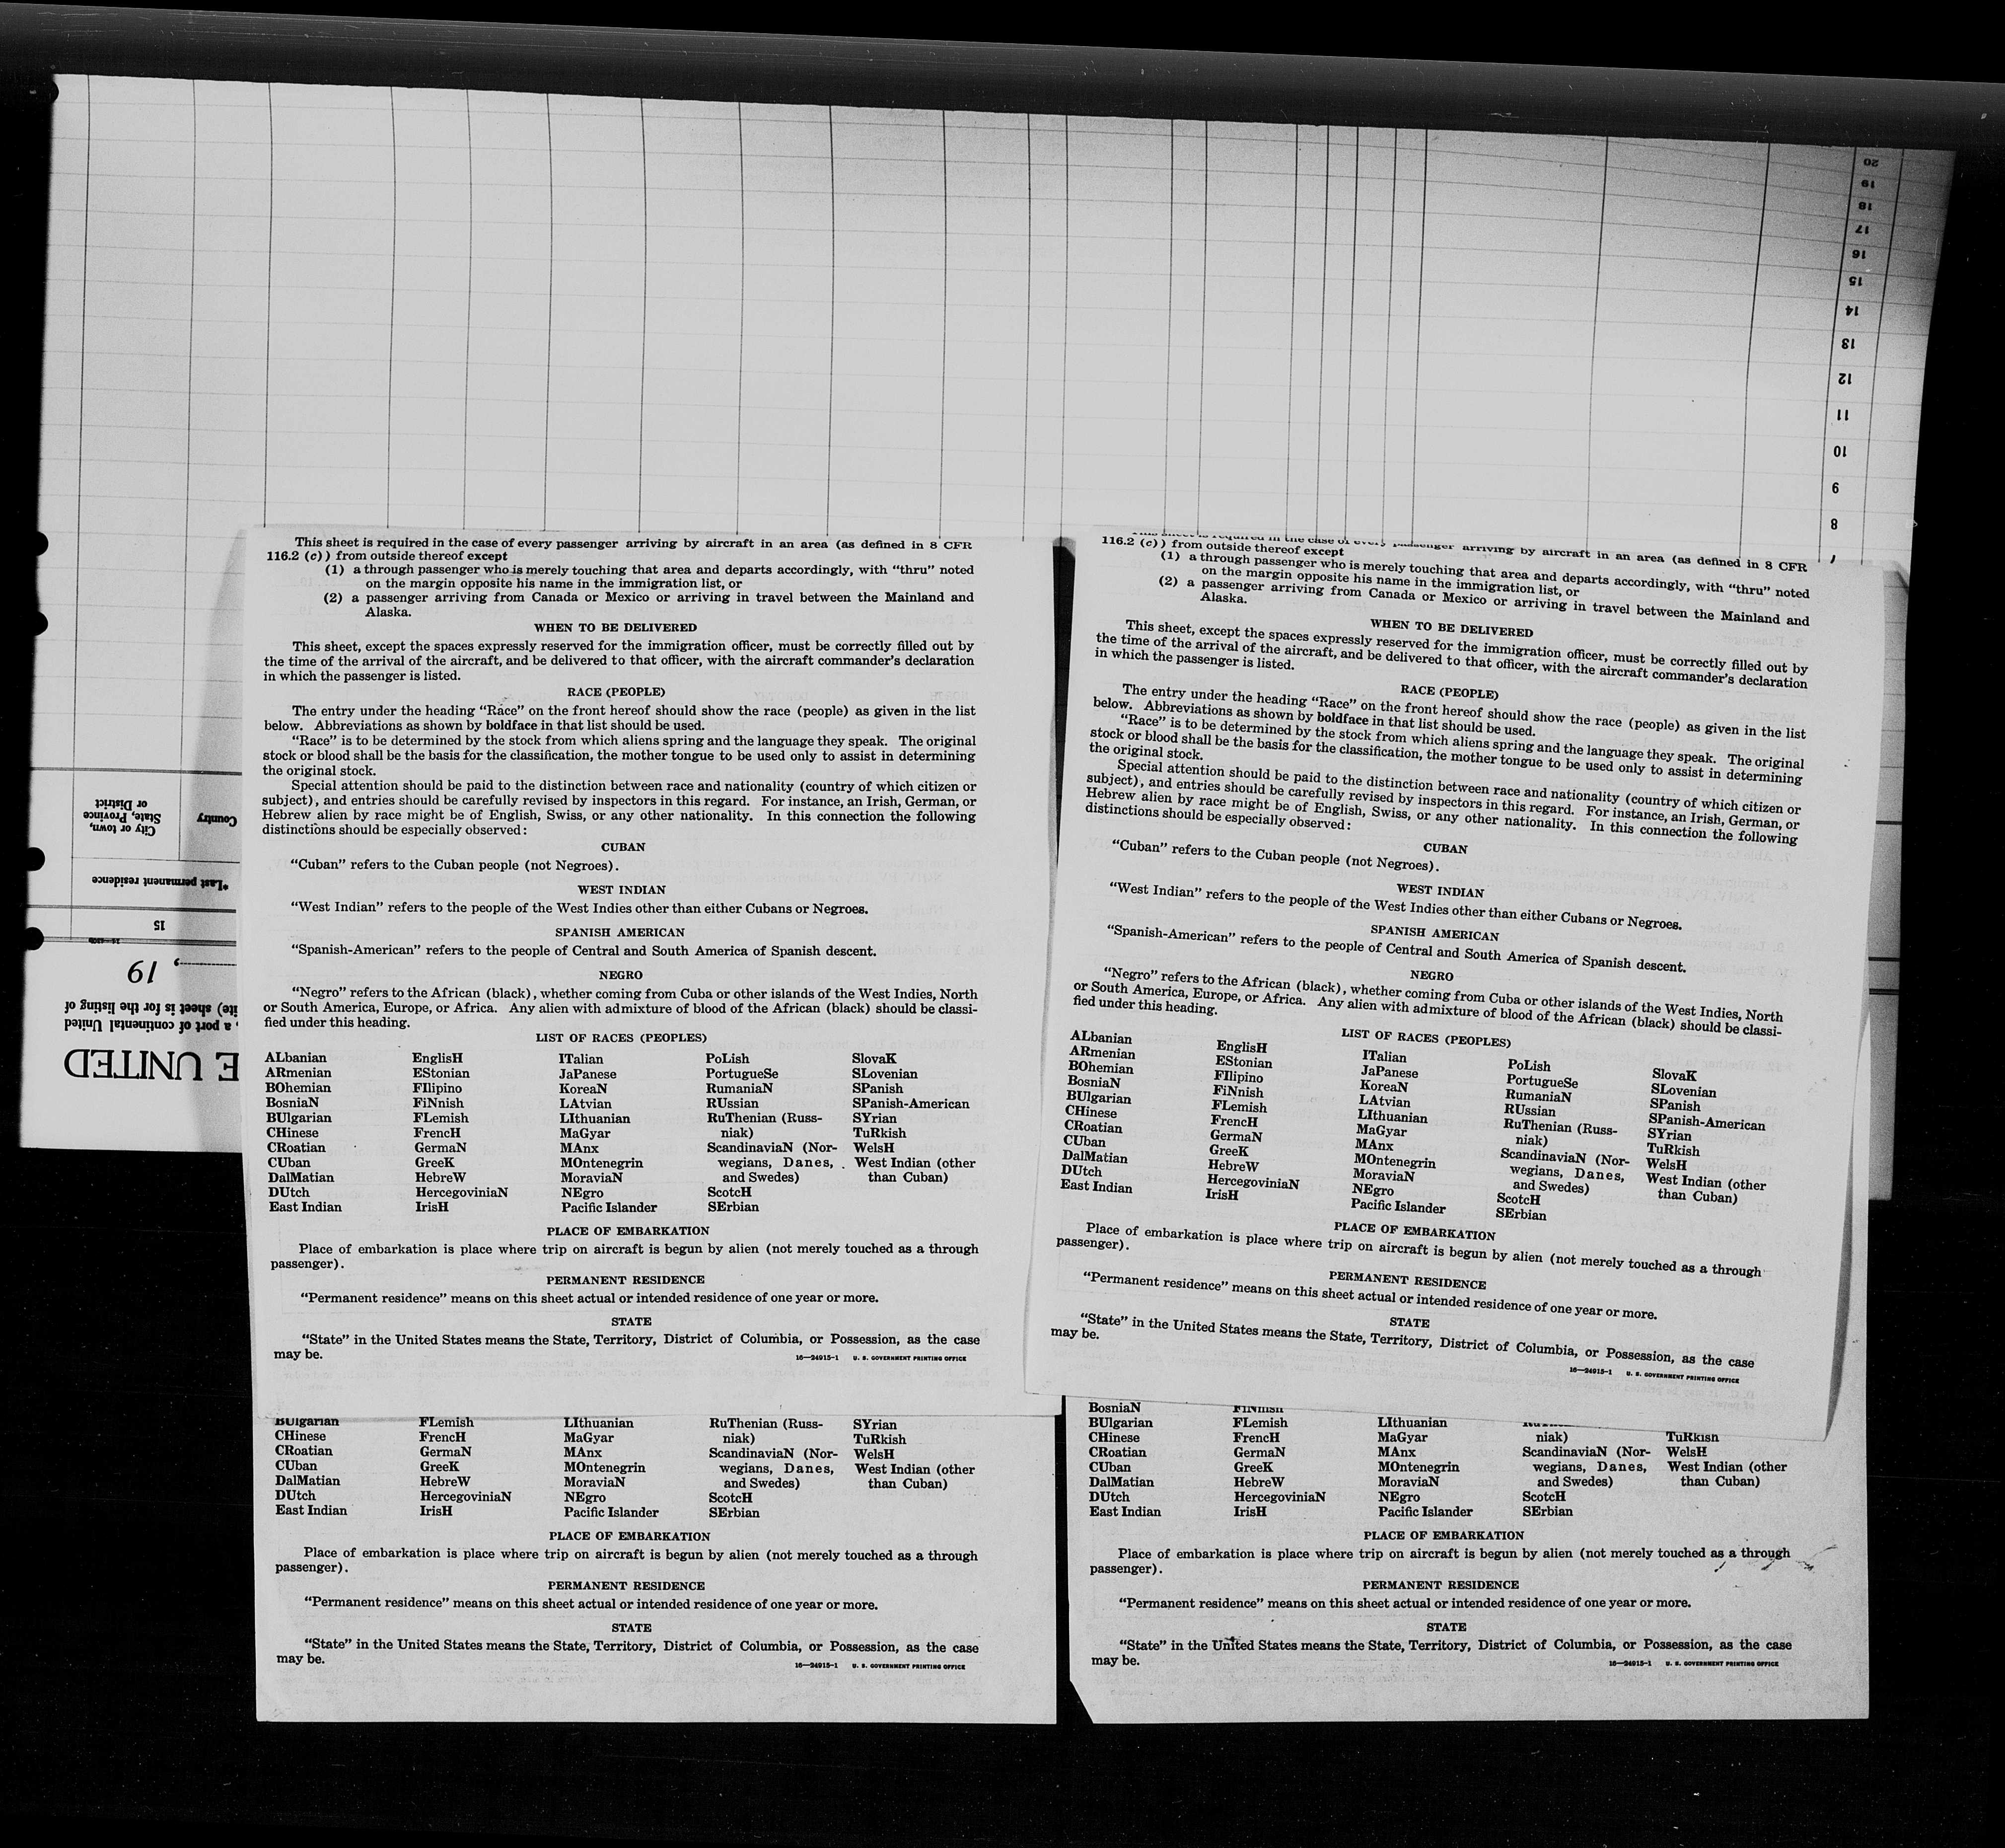 20
19
18
17
16
15
14
13
12
11
10
9
8
7
This sheet is required in the case of every passenger arriving by aircraft in an area (as defined in 8 CFR
116.2 (c)) from outside thereof except
(1) a through passenger who is merely touching that area and departs accordingly, with “thru” noted
on the margin opposite his name in the immigration list, or
(2) a passenger arriving from Canada or Mexico or arriving in travel between the Mainland and
Alaska.
WHEN TO BE DELIVERED
This sheet, except the spaces expressly reserved for the immigration officer, must be correctly filled out by
the time of the arrival of the aircraft, and be delivered to that officer, with the aircraft commander’s declaration
in which the passenger is listed.
RACE (PEOPLE)
The entry under the heading “Race” on the front hereof should show the race (people) as given in the list
below. Abbreviations as shown by boldface in that list should be used.
“Race” is to be determined by the stock from which aliens spring and the language they speak. The original
stock or blood shall be the basis for the classification, the mother tongue to be used only to assist in determining
the original stock.
Special attention should be paid to the distinction between race and nationality (country of which citizen or
subject), and entries should be carefully revised by inspectors in this regard. For instance, an Irish, German, or
Hebrew alien by race might be of English, Swiss, or any other nationality. In this connection the following
distinctions should be especially observed:
CUBAN
“Cuban” refers to the Cuban people (not Negroes).
WEST INDIAN
“West Indian” refers to the people of the West Indies other than either Cubans or Negroes.
SPANISH AMERICAN
“Spanish-American” refers to the people of Central and South America of Spanish descent.
NEGRO
“Negro” refers to the African (black), whether coming from Cuba or other islands of the West Indies, North
or South America, Europe, or Africa. Any alien with admixture of blood of the African (black) should be classi-
fied under this heading.
LIST OF RACES (PEOPLES)
ALbanian EnglisH ITalian PoLish SlovaK
ARmenian EStonian JaPanese PortugueSe SLovenian
BOhemian FIlipino KoreaN RumaniaN SPanish
BosniaN FiNnish LAtvian RUssian SPanish-American
BUlgarian FLemish LIthuanian RuThenian (Russ- SYrian
CHinese FrencH MaGyar niak) TuRkish
CRoatian GermaN MAnx ScandinaviaN (Nor- WelsH
CUban GreeK MOntenegrin wegians, Danes, West Indian (other
DalMatian HebreW MoraviaN and Swedes) than Cuban)
DUtch HercegoviniaN NEgro ScotcH
East Indian IrisH Pacific Islander SErbian
PLACE OF EMBARKATION
Place of embarkation is place where trip on aircraft is begun by alien (not merely touched as a through
passenger).
PERMANENT RESIDENCE
“Permanent residence” means on this sheet actual or intended residence of one year or more.
STATE
“State” in the United States means the State, Territory, District of Columbia, or Possession, as the case
may be.
16—24915-1 U. S. GOVERNMENT PRINTING OFFICE
BUlgarian FLemish LIthuanian RuThenian (Russ- SYrian
CHinese FrencH MaGyar niak) TuRkish
CRoatian GermaN MAnx ScandinaviaN (Nor- WelsH
CUban GreeK MOntenegrin wegians, Danes, West Indian (other
DalMatian HebreW MoraviaN and Swedes) than Cuban)
DUtch HercegoviniaN NEgro ScotcH
East Indian IrisH Pacific Islander SErbian
PLACE OF EMBARKATION
Place of embarkation is place where trip on aircraft is begun by alien (not merely touched as a through
passenger).
PERMANENT RESIDENCE
“Permanent residence” means on this sheet actual or intended residence of one year or more.
STATE
“State” in the United States means the State, Territory, District of Columbia, or Possession, as the case
may be.
16—24915-1 U. S. GOVERNMENT PRINTING OFFICE
This sheet is required in the case of every passenger arriving by aircraft in an area (as defined in 8 CFR
116.2 (c)) from outside thereof except
(1) a through passenger who is merely touching that area and departs accordingly, with “thru” noted
on the margin opposite his name in the immigration list, or
(2) a passenger arriving from Canada or Mexico or arriving in travel between the Mainland and
Alaska.
WHEN TO BE DELIVERED
This sheet, except the spaces expressly reserved for the immigration officer, must be correctly filled out by
the time of the arrival of the aircraft, and be delivered to that officer, with the aircraft commander’s declaration
in which the passenger is listed.
RACE (PEOPLE)
The entry under the heading “Race” on the front hereof should show the race (people) as given in the list
below. Abbreviations as shown by boldface in that list should be used.
“Race” is to be determined by the stock from which aliens spring and the language they speak. The original
stock or blood shall be the basis for the classification, the mother tongue to be used only to assist in determining
the original stock.
Special attention should be paid to the distinction between race and nationality (country of which citizen or
subject), and entries should be carefully revised by inspectors in this regard. For instance, an Irish, German, or
Hebrew alien by race might be of English, Swiss, or any other nationality. In this connection the following
distinctions should be especially observed:
CUBAN
“Cuban” refers to the Cuban people (not Negroes).
WEST INDIAN
“West Indian” refers to the people of the West Indies other than either Cubans or Negroes.
SPANISH AMERICAN
“Spanish-American” refers to the people of Central and South America of Spanish descent.
NEGRO
“Negro” refers to the African (black), whether coming from Cuba or other islands of the West Indies, North
or South America, Europe, or Africa. Any alien with admixture of blood of the African (black) should be classi-
fied under this heading.
LIST OF RACES (PEOPLES)
ALbanian EnglisH ITalian PoLish SlovaK
ARmenian EStonian JaPanese PortugueSe SLovenian
BOhemian FIlipino KoreaN RumaniaN SPanish
BosniaN FiNnish LAtvian RUssian SPanish-American
BUlgarian FLemish LIthuanian RuThenian (Russ- SYrian
CHinese FrencH MaGyar niak) TuRkish
CRoatian GermaN MAnx ScandinaviaN (Nor- WelsH
CUban GreeK MOntenegrin wegians, Danes, West Indian (other
DalMatian HebreW MoraviaN and Swedes) than Cuban)
DUtch HercegoviniaN NEgro ScotcH
East Indian IrisH Pacific Islander SErbian
PLACE OF EMBARKATION
Place of embarkation is place where trip on aircraft is begun by alien (not merely touched as a through
passenger).
PERMANENT RESIDENCE
“Permanent residence” means on this sheet actual or intended residence of one year or more.
STATE
“State” in the United States means the State, Territory, District of Columbia, or Possession, as the case
may be.
16—24915-1 U. S. GOVERNMENT PRINTING OFFICE
BosniaN FiNnish
BUlgarian FLemish LIthuanian
CHinese FrencH MaGyar niak) TuRkish
CRoatian GermaN MAnx ScandinaviaN (Nor- WelsH
CUban GreeK MOntenegrin wegians, Danes, West Indian (other
DalMatian HebreW MoraviaN and Swedes) than Cuban)
DUtch HercegoviniaN NEgro ScotcH
East Indian IrisH Pacific Islander SErbian
PLACE OF EMBARKATION
Place of embarkation is place where trip on aircraft is begun by alien (not merely touched as a through
passenger).
PERMANENT RESIDENCE
“Permanent residence” means on this sheet actual or intended residence of one year or more.
STATE
“State” in the United States means the State, Territory, District of Columbia, or Possession, as the case
may be.
16—24915-1 U. S. GOVERNMENT PRINTING OFFICE
E UNITED
, a port of continental United
ite) sheet is for the listing of
, 19
15
*Last permanent residence
Country
City or town,
State, Province
or District